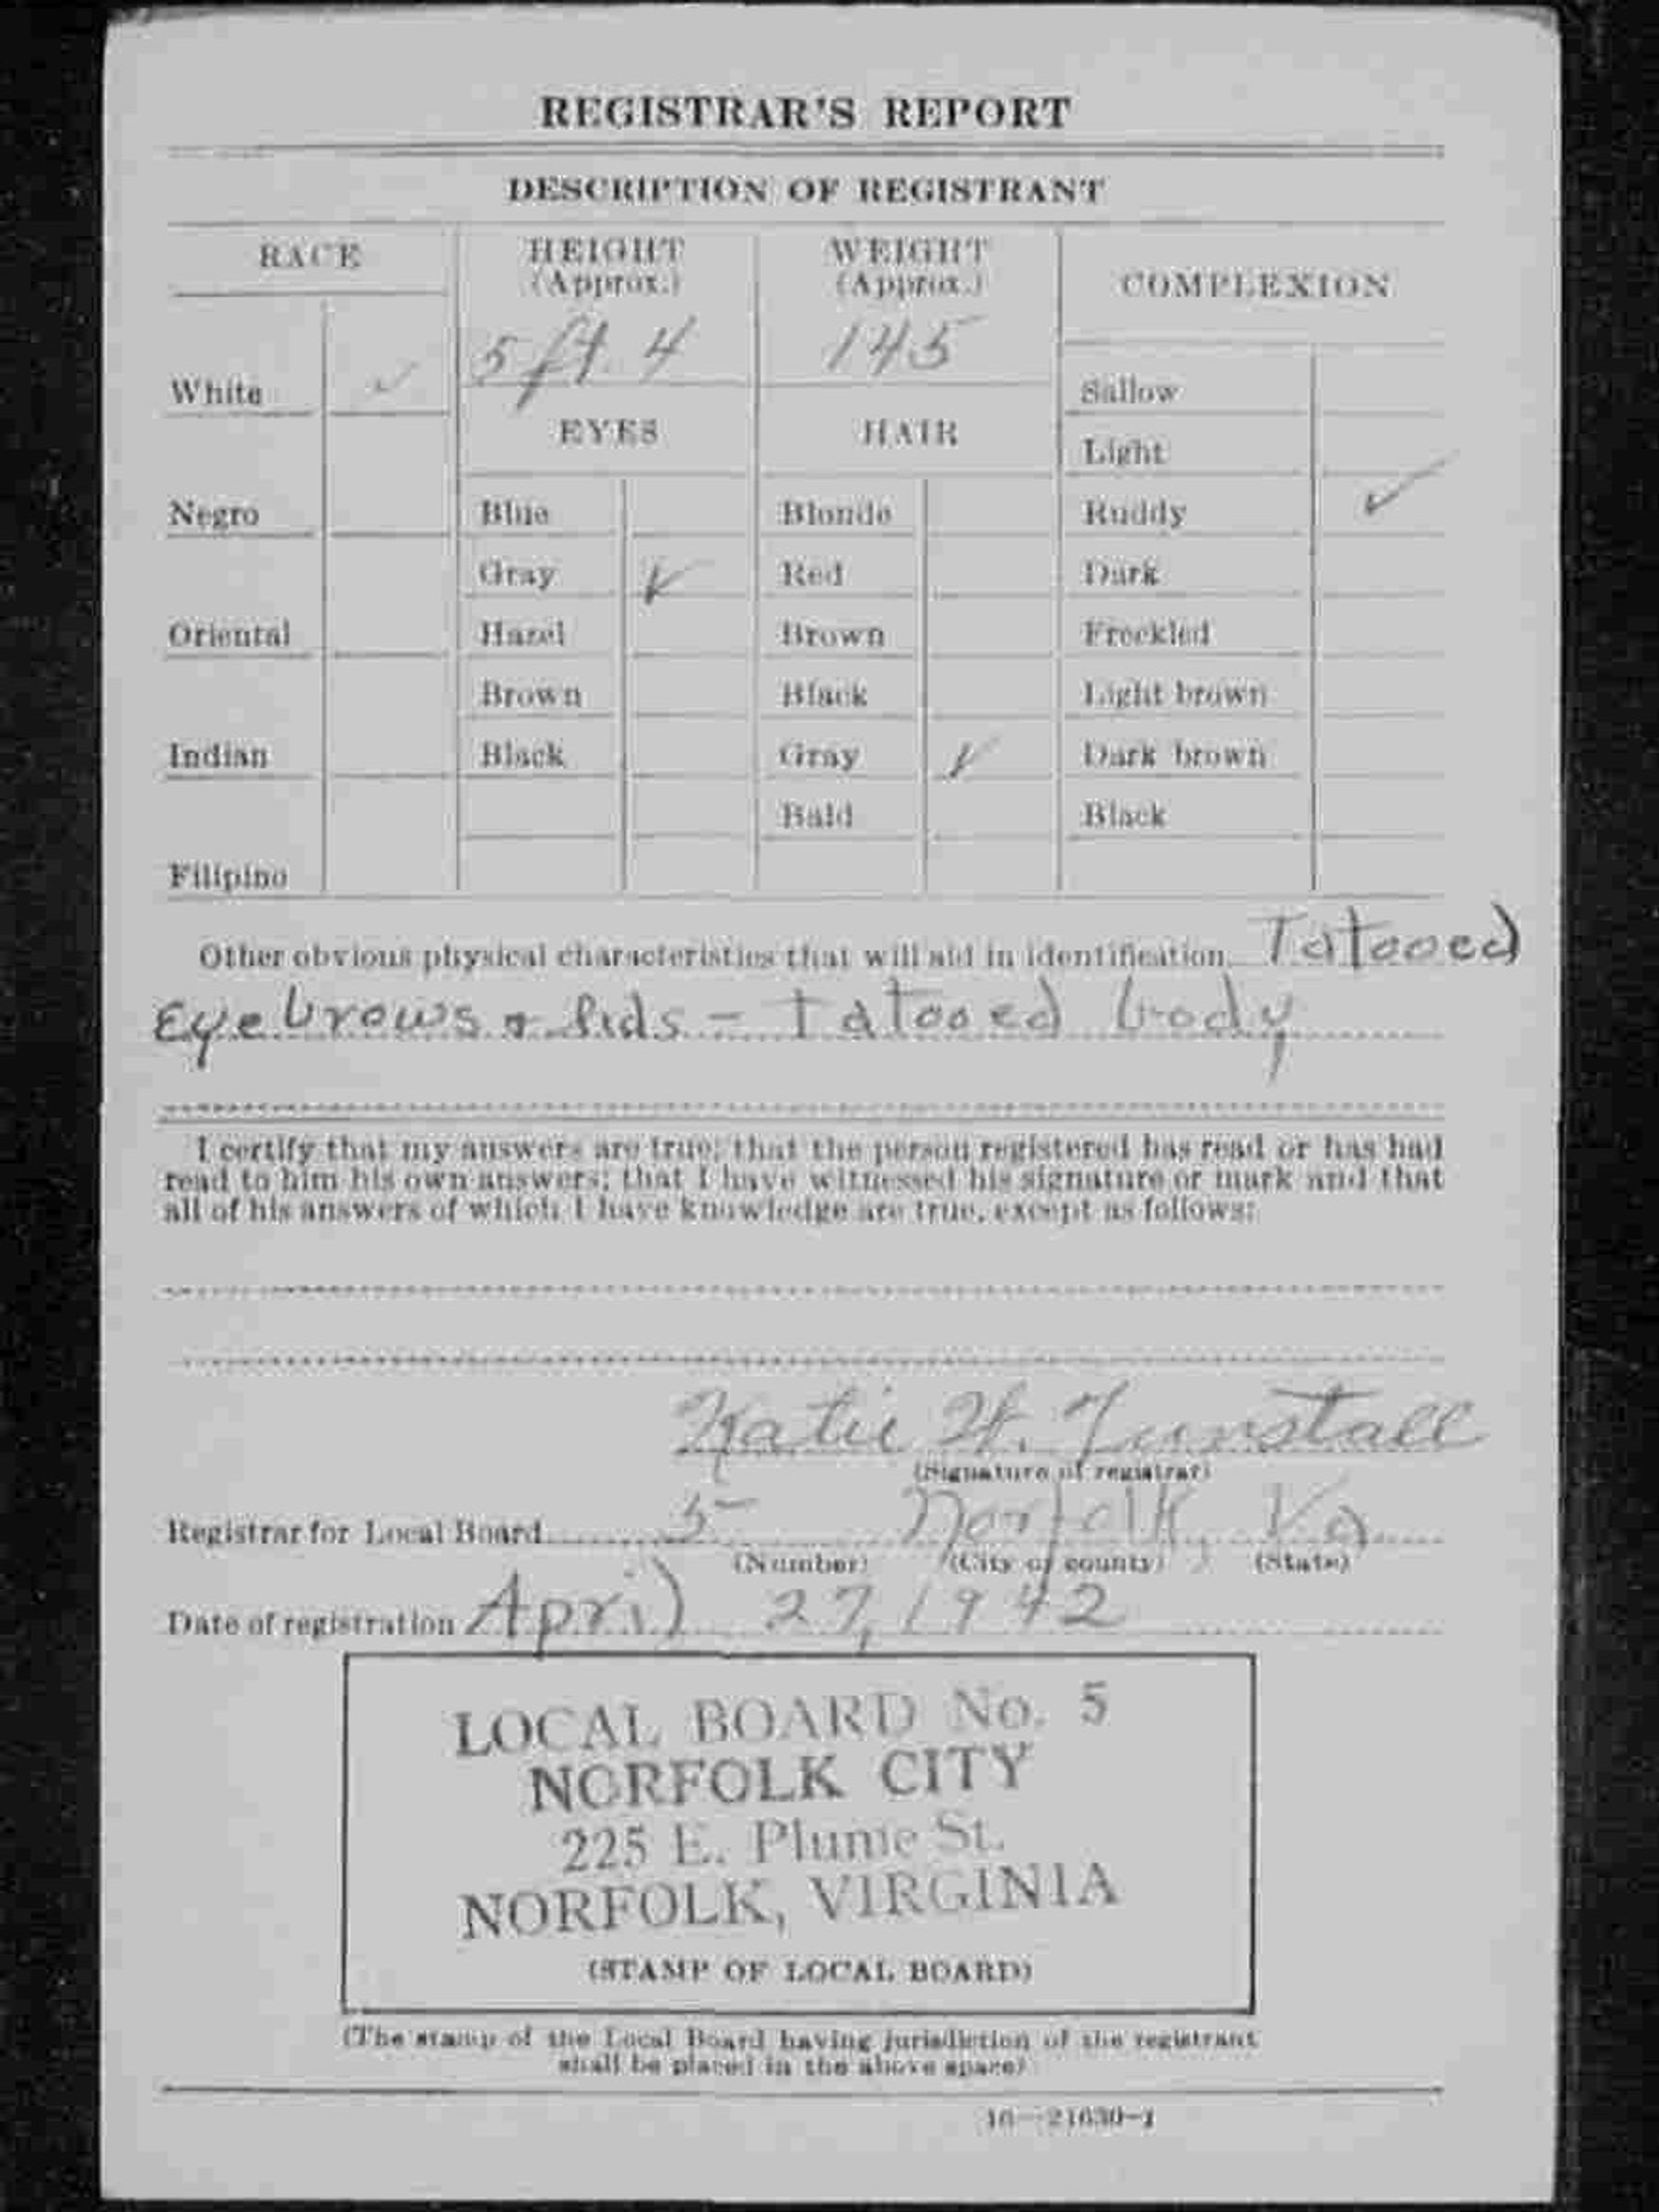 REGISTRAR'S REPORT
DESCRIPTION OF REGISTRANT
RACE HEIGHT (Approx.) WEIGHT (Approx.) COMPLEXION
5 ft. 4 145
White ✓ Sallow
EYES HAIR
Light
Negro Blue Blonde Ruddy ✓
Gray ✓ Red Dark
Oriental Hazel Brown Freckled
Brown Black Light brown
Indian Black Gray ✓ Dark brown
Bald Black
Filipino
Other obvious physical characteristics that will aid in identification Tatooed
Eyebrows & lids - tatooed body
I certify that my answers are true; that the person registered has read or has had
read to him his own answers; that I have witnessed his signature or mark and that
all of his answers of which I have knowledge are true, except as follows:
Katie H. Tunstall
(Signature of registrar)
Registrar for Local Board 5 Norfolk Va.
(Number) (City or county) (State)
Date of registration April 27, 1942
LOCAL BOARD No. 5
NORFOLK CITY
225 E. Plume St.
NORFOLK, VIRGINIA
(STAMP OF LOCAL BOARD)
(The stamp of the Local Board having jurisdiction of the registrant
shall be placed in the above space)
16—21630-1